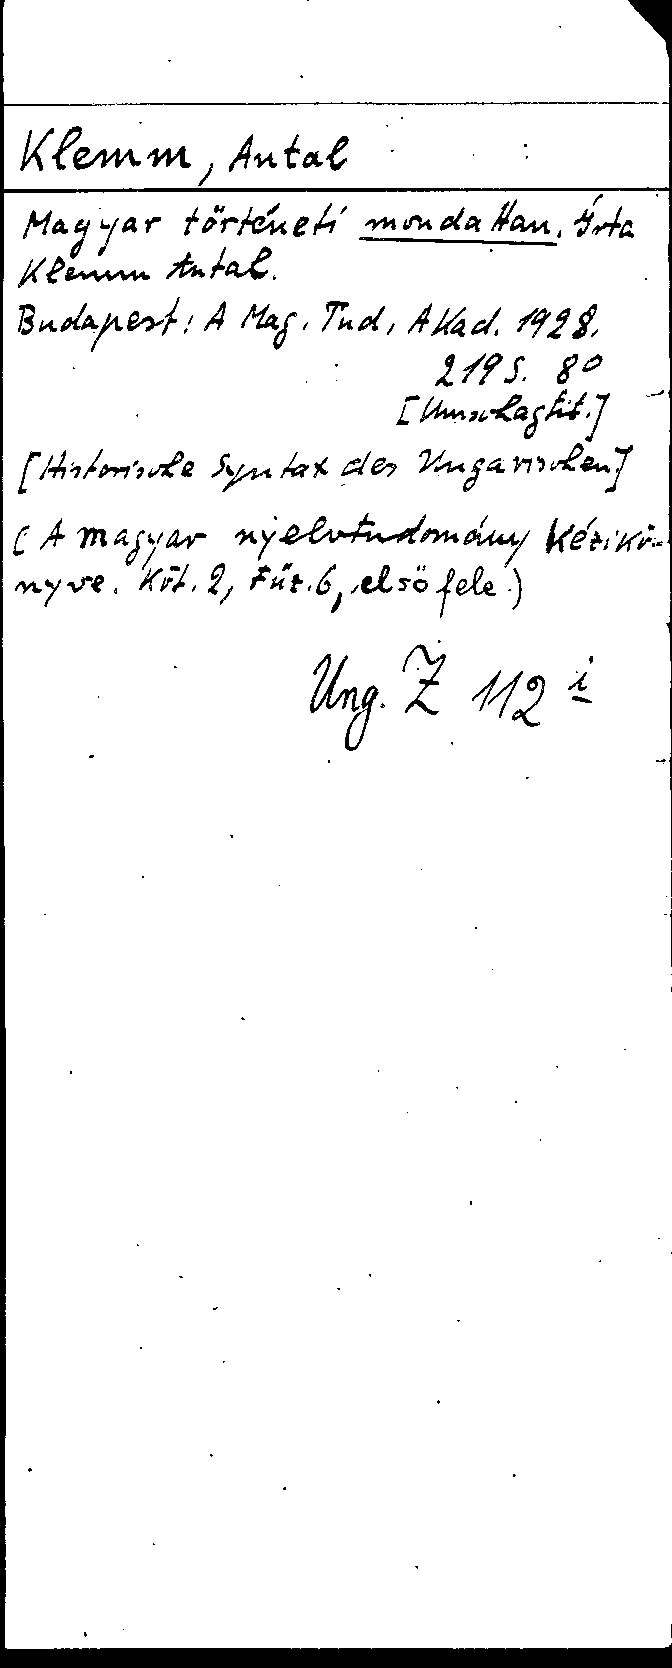 Klemm, Antal
Magyar történeti mondattan. Írta
Klemm Antal.
Budapest: A Mag. Tud. Akad. 1928.
219 S. 8°
[Umschlagtit.]
[Historische Syntax des Ungarischen]
(A magyar nyelvtudomány kézikö-
nyve. Köt. 2, Füz. 6, első fele.)
Ung. Z 112 i